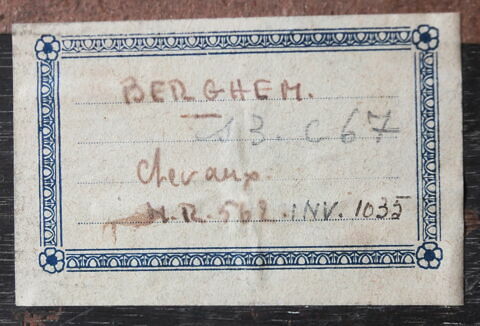 BERGHEM.
13. C 67
Chevaux.
M.R. 562. INV. 1035